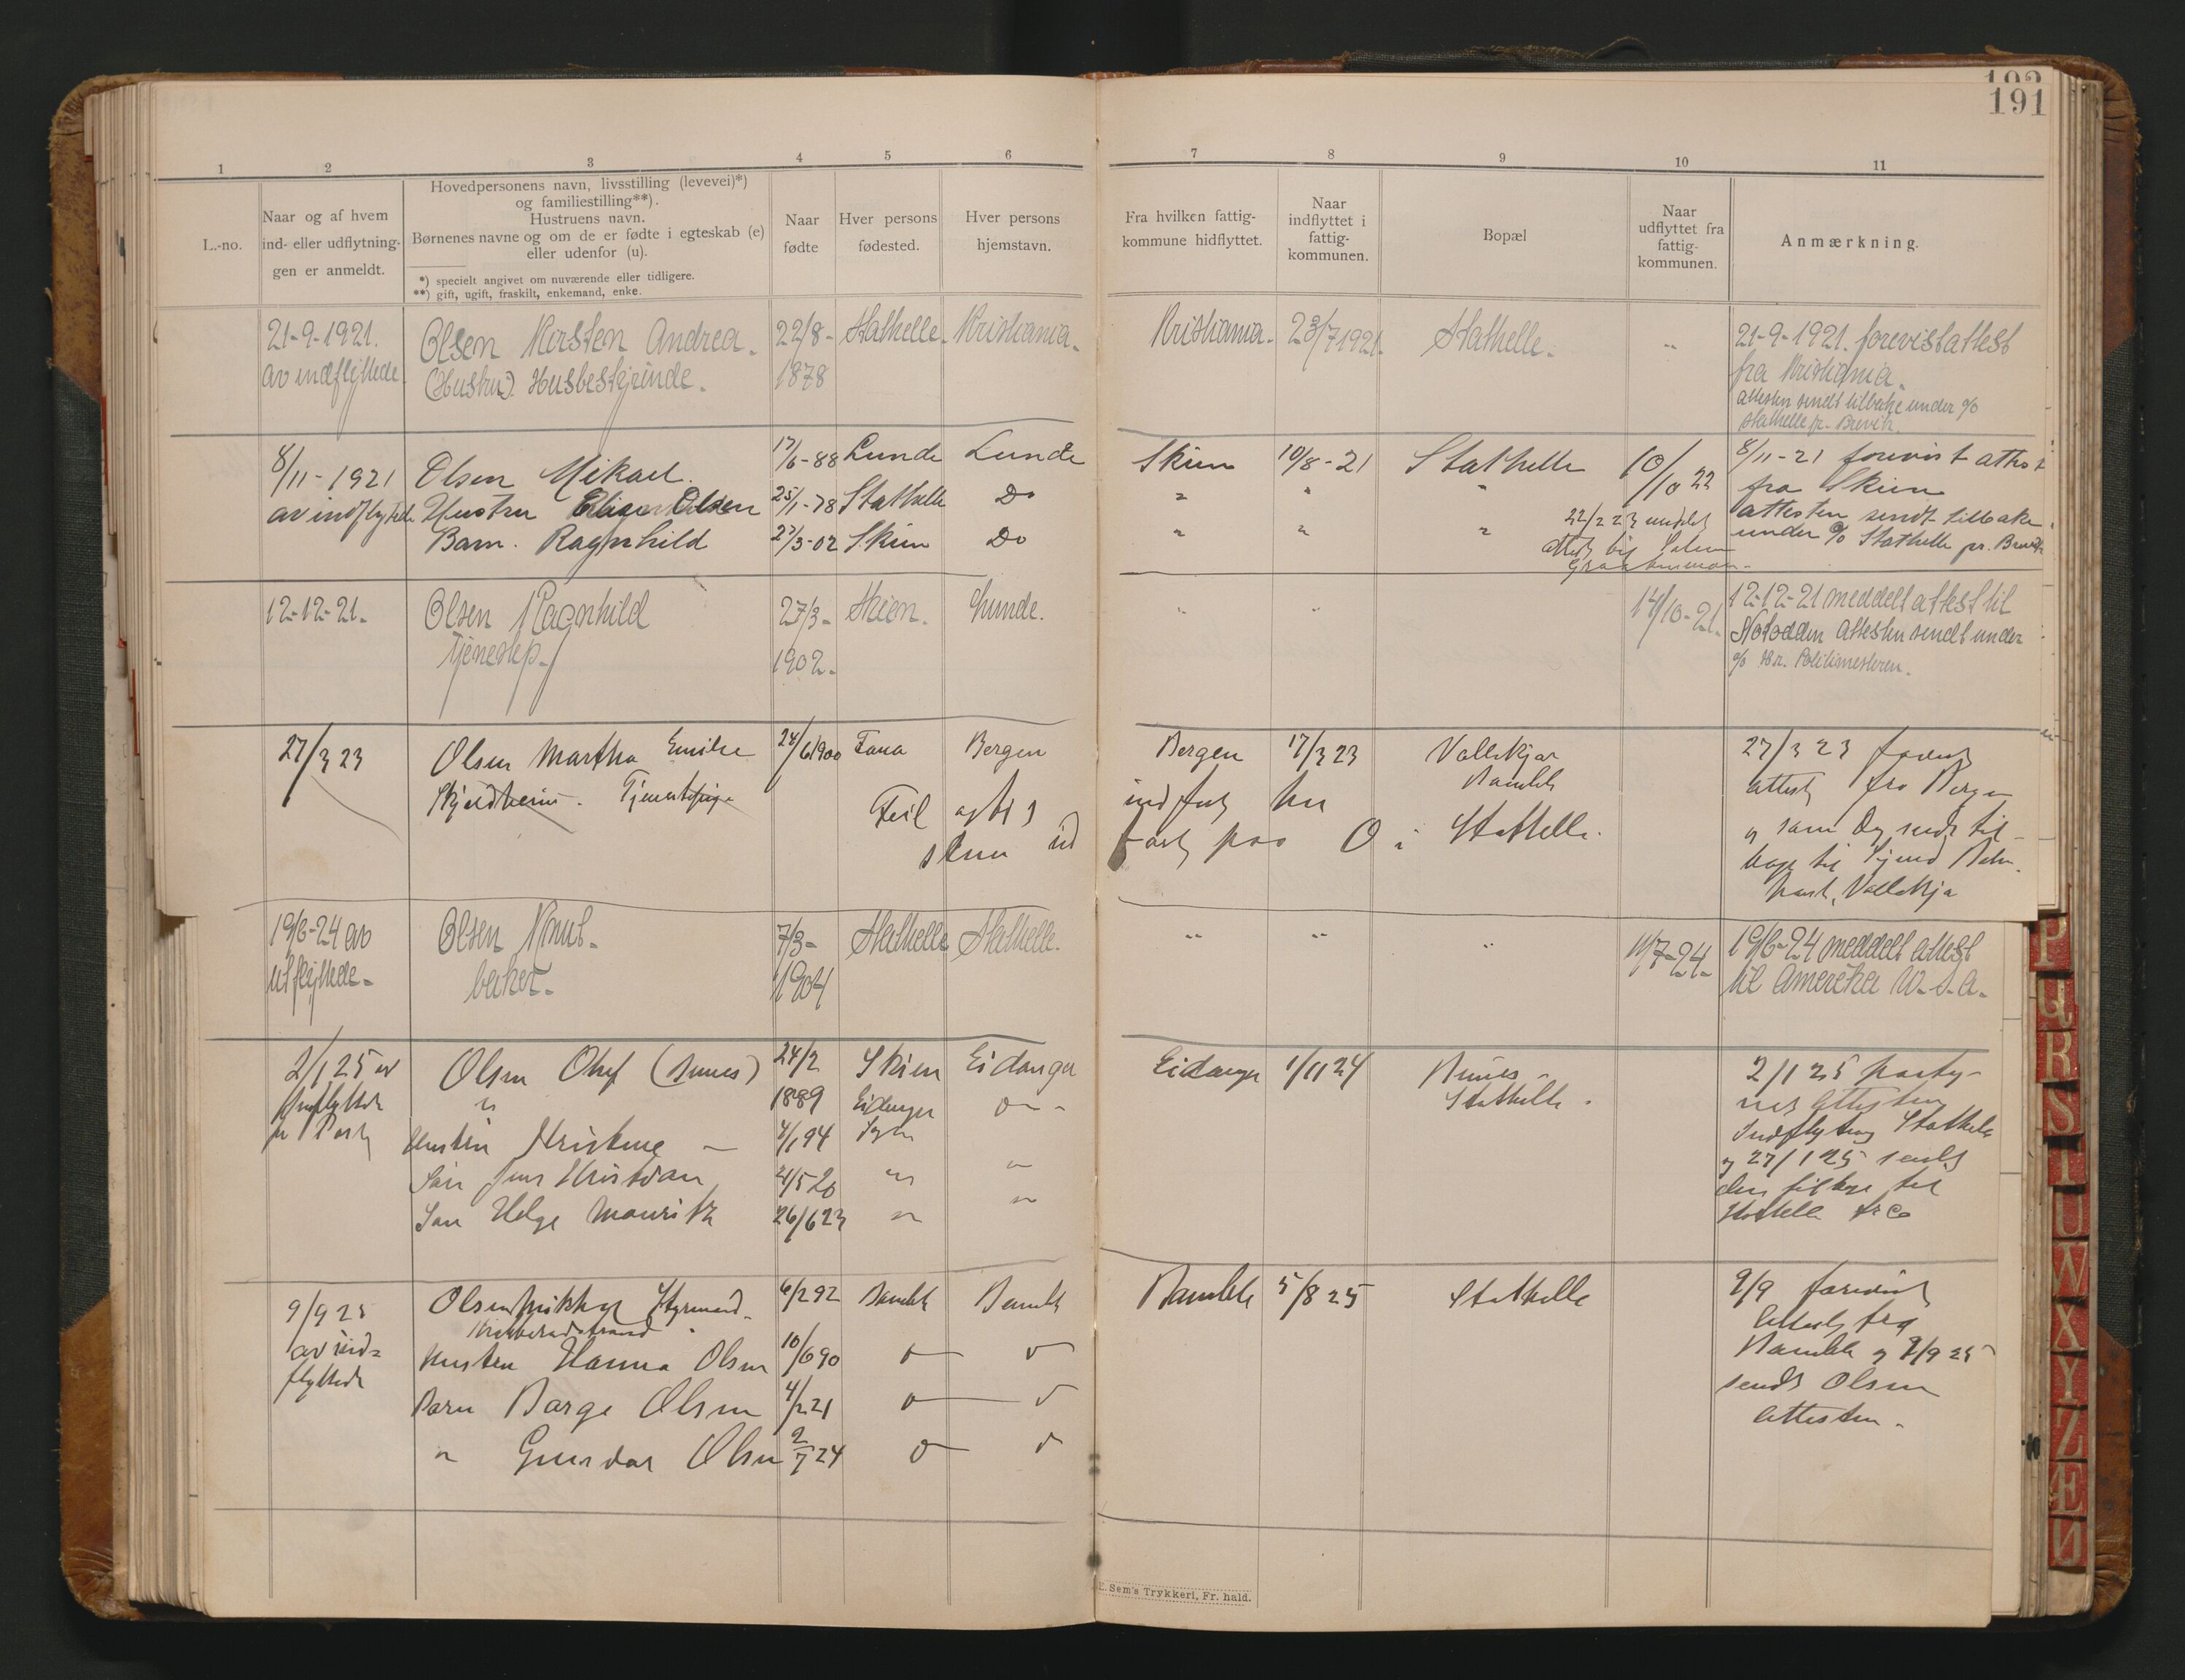 192
191
1 2 3 4 5 6 7 8 9 10 11
L.-no.
Naar og af hvem
ind- eller udflytnin-
gen er anmeldt.
Hovedpersonens navn, livsstilling (levevei)*)
og familiestilling**).
Hustruens navn.
Børnenes navne og om de er fødte i egteskab (e)
eller udenfor (u).
*) specielt angivet om nuværende eller tidligere.
**) gift, ugift, fraskilt, enkemand, enke.
Naar
fødte
Hver persons
fødested.
Hver persons
hjemstavn.
Fra hvilken fattig-
kommune hidflyttet.
Naar
indflyttet i
fattig-
kommunen.
Bopæl
Naar
udflyttet fra
fattig-
kommunen.
Anmærkning.
21-9-1921. Olsen Kirsten Andrea. 22/8- Stathelle. Kristiania. Kristiania. 23/7 1921. Stathelle. " 21-9-1921. forevist attest
av indflyttede (Hustru). Husbestyrinde. 1878 fra Kristiania.
attesten sendt tilbake under %
Stathelle pr. Brevik.
8/11-1921 Olsen Mikael. 17/6-88 Lunde Lunde Skien 10/8-21 Stathelle 10/10 22 8/11-21 forevist attest
av indflyttede Hustru Olsen 25/1-78 Stathelle Do " " " fra Skien
22/2 23 meddelt attesten sendt tilbake
Barn. Ragnhild 27/3-02 Skien Do " " " under % Stathelle pr. Brevik
attest til
12-12-21. Olsen Ragnhild 27/3- Skien. Lunde. " " 14/10-21. 12-12-21 meddelt attest til
tjenestep. 1902. Notodden attesten sendt under
% Hr. Politimesteren.
27/3 23 Olsen Martha Emilie 24/6 1900 Fana Bergen Bergen 17/3 23 Valleskjær 27/3 23 forevist
Tjenestepige Bamble attest fra Bergen
Feil indført her
Stathelle. og samme Dag sendt til-
bage til
19/6-24 av Olsen Knut. 7/3- Stathelle Stathelle. " " " 11/7-24. 19/6-24 meddelt attest
utflyttede. baker. 1904 til Amerika U.S.A.
2/1 25 av Olsen Oluf 24/2 Skien Eidanger Eidanger 1/11 24 2/1 25
Indflyttede 1889 Eidanger Stathelle.
pr Post Hustru Kristine 4/1 94 Indflytning Stathelle
Søn Jens Kristian 21/5 20 " " og 27/1 25 sendt
Søn Helge Mauritz 26/6 23 " " den tilbage til
9/9 25 Olsen Styrmand 6/2 92 Bamble Bamble Bamble 5/8 25 Stathelle 9/9 forevist
av ind= Attest fra
flyttede Hustru Hanna Olsen 10/6 90 Bamble og 9/9 25
Barn Børge Olsen 4/2 21 sendt Olsen
" Gunvor Olsen 2/7 24 Attesten.
E. Sem's Trykkeri, Fr. hald.
P
Q
R
S
T
U
W
X
Y
Z
Æ